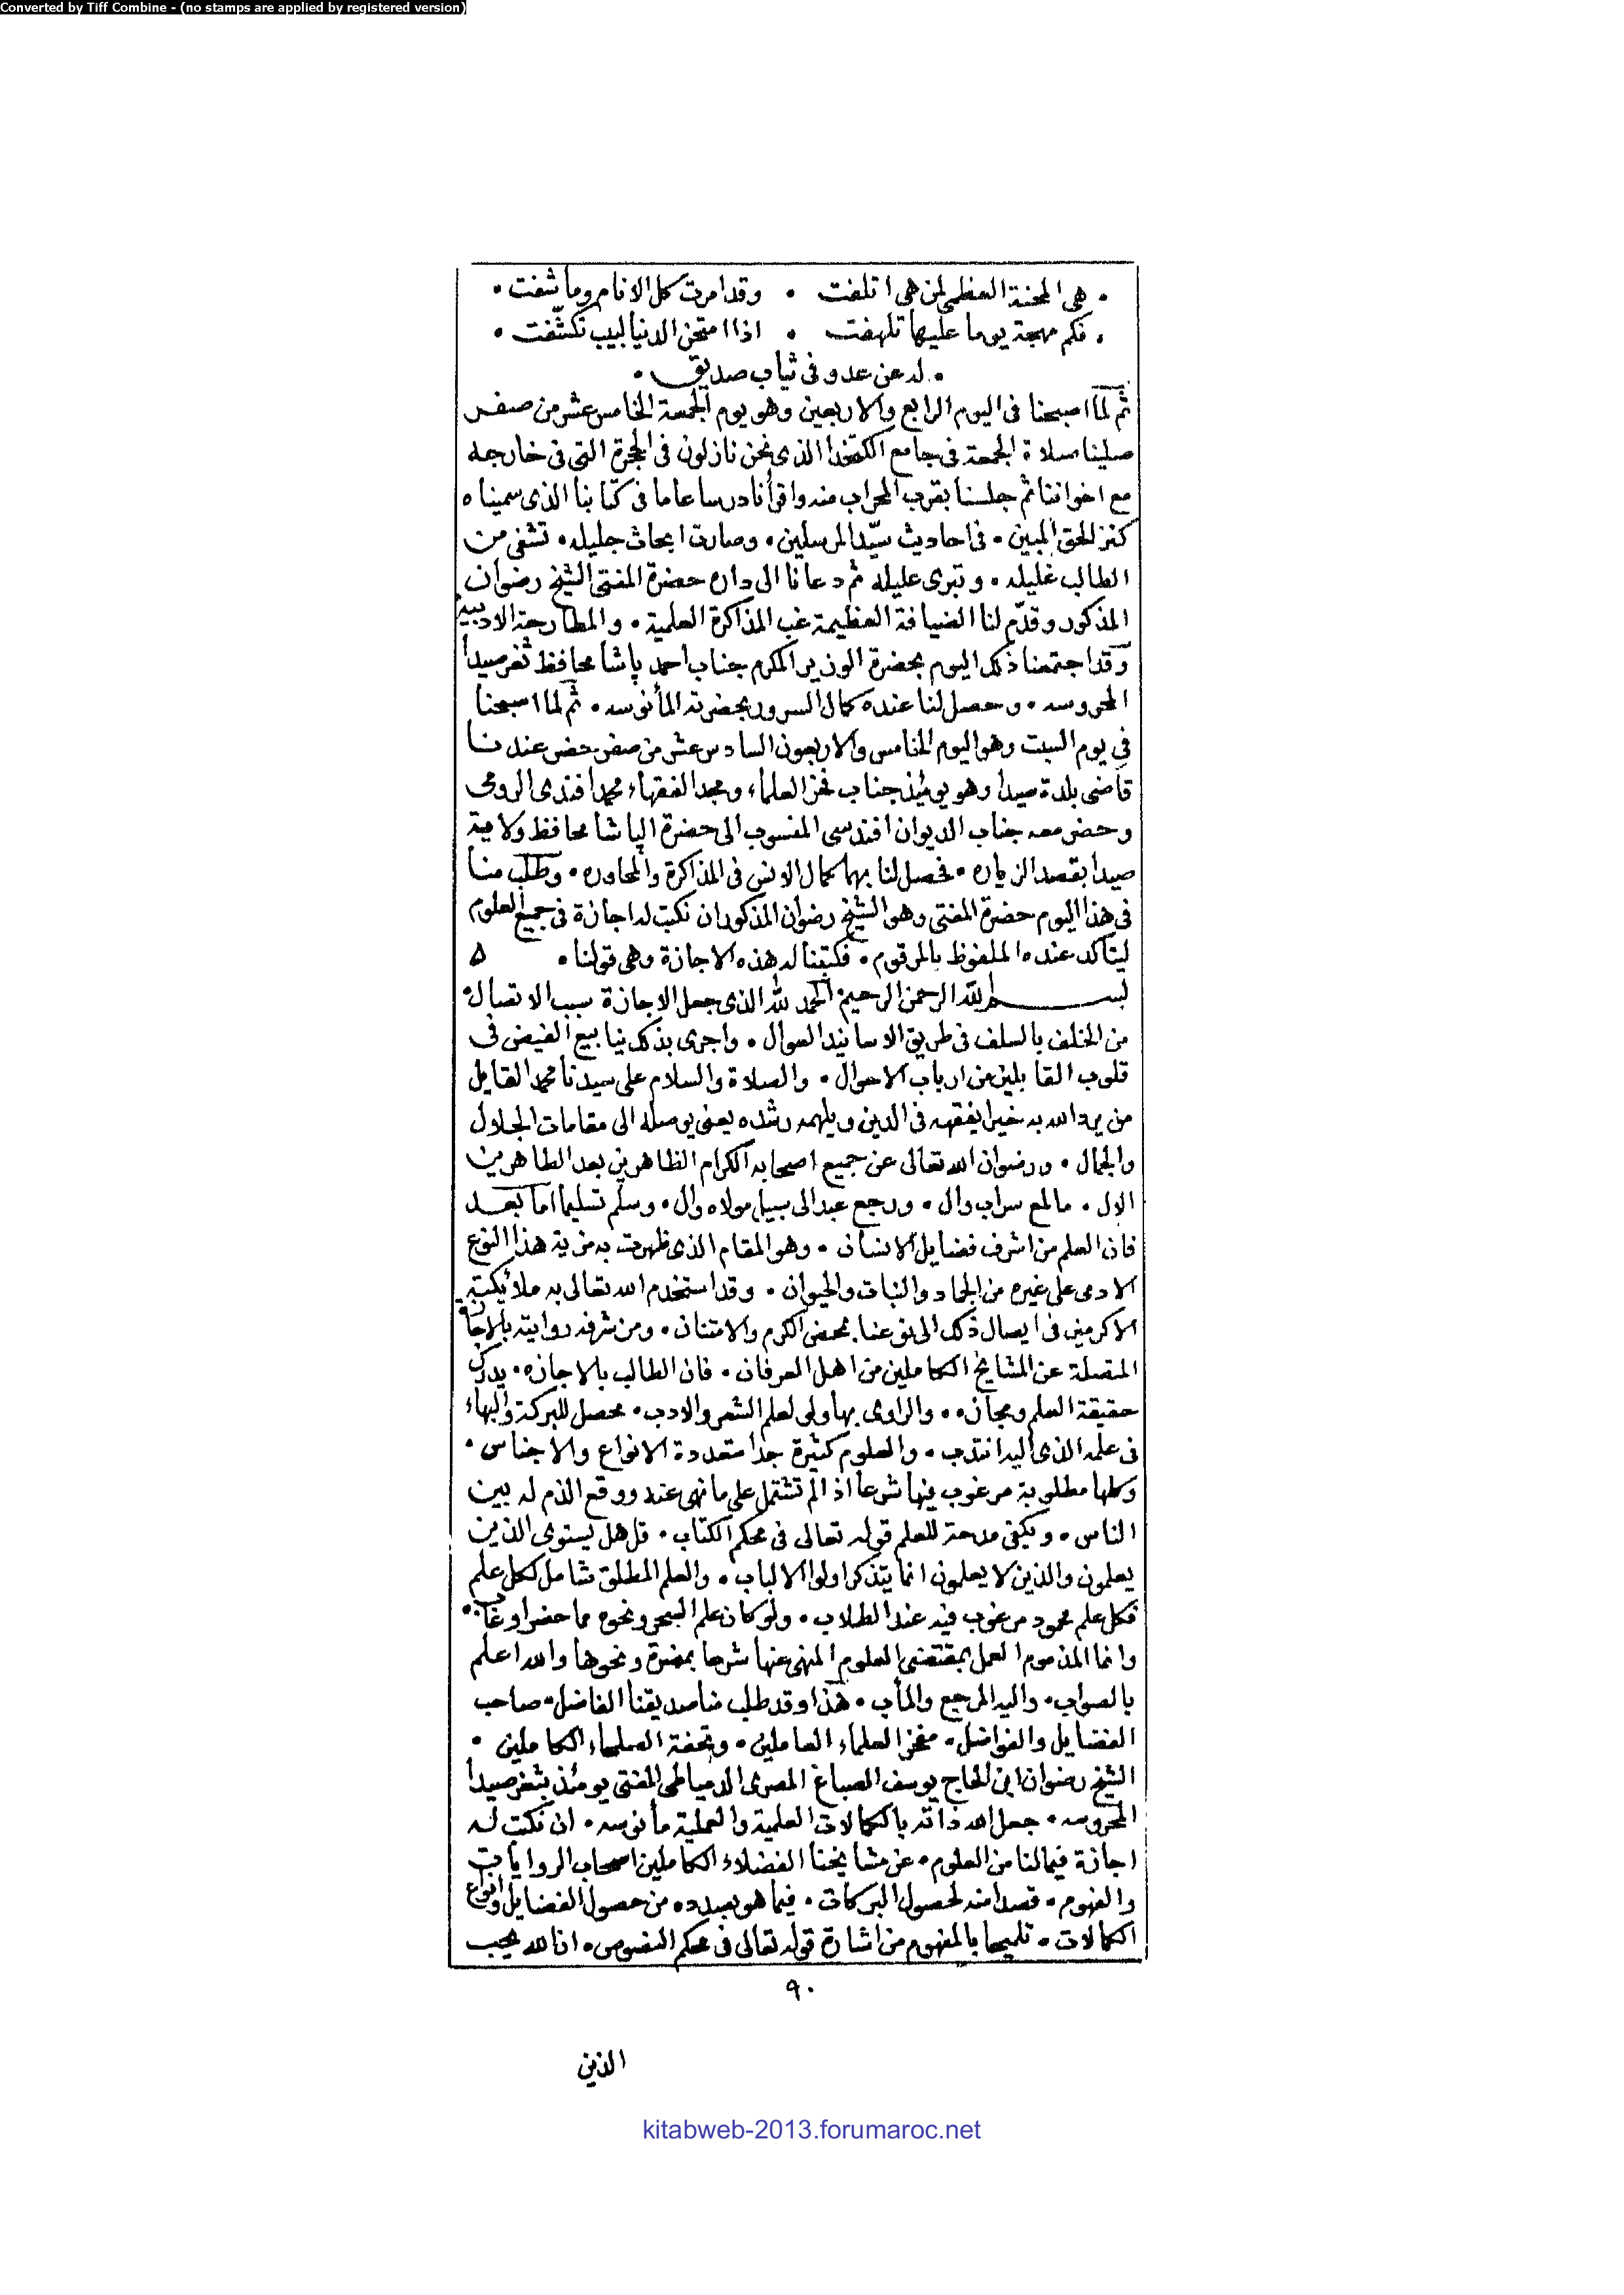 Converted by Tiff Combine - (no stamps are applied by registered version)
۰ هى المحنة العظمى لمن هى اتلفت ۰ وقد امرت كل الانام وما شفت ۰
۰ فكم مهجة يوما عليها تلهفت ۰ اذا امتحن الدنيا لبيب تكشّفت ۰
۰ له عن عدو فى ثياب صديق ۰
ثم لما اصبحنا فى اليوم الرابع والاربعين وهو يوم الجمعة الخامس عشر من صفر
صلينا صلاة الجمعة فى جامع الكتخدا الذى نحن نازلون فى الحجرة التى فى خارجه
مع اخواننا ثم جلسنا بقرب المحراب منه واقرأنا درسا عاما فى كتابنا الذى سميناه
كنز الحق المبين ۰ فى احاديث سيّد المرسلين ۰ وصارت ابحاث جليله ۰ تشفى من
الطالب غليله ۰ وتبرى عليله ثم دعانا الى داره حضرة المفتى الشيخ رضوان
المذكور وقدّم لنا الضيافة العظيمة غب المذاكرة العلمية ۰ والمطارحة الادبية
وقد اجتمعنا ذلك اليوم بحضرة الوزير المكرم جناب احمد پاشا محافظ ثغر صيدا
المحروسه ۰ وحصل لنا عنده كمال السرور بحضرته المأنوسه ۰ ثم لما اصبحنا
فى يوم السبت وهو اليوم الخامس والاربعون السادس عشر من صفر حضر عندنا
قاضى بلدة صيدا وهو يومئذ جناب فخر العلماء ومجد الفقهاء محمد افندى الرومى
وحضر معه جناب الديوان افندسى المنسوب الى حضرة الپاشا محافظ ولاية
صيدا بقصد الزياره ۰ فحصل لنا بهما كمال الانس فى المذاكرة والمحاوره ۰ وطلب منا
فى هذا اليوم حضرة المفتى وهو الشيخ رضوان المذكور ان نكتب له اجازة فى جميع العلوم
ليتأكد عنده الملفوظ بالمرقوم ۰ فكتبنا له هذه الاجازة وهى قولنا ۰
بسم الله الرحمن الرحيم الحمد لله الذى جعل الاجازة سبب الاتصال
من الخلف بالسلف فى طريق الاسانيد العوال ۰ واجرى بذلك ينابيع الفيض فى
قلوب القابلين من ارباب الاحوال ۰ والصلاة والسلام على سيدنا محمد القايل
من يرد الله به خيرا يفقهه فى الدين ويلهمه رشده يعنى يوصله الى مقامات الجلال
والجمال ۰ ورضوان الله تعالى عن جميع اصحابه الكرام الظاهرين بعد الطاهرين
الال ۰ ما لمع سراب وال ۰ ورجع عبد الى سبيل مولاه وال ۰ وسلم تسليما اما بعد
فان العلم من اشرف فضايل الانسان ۰ وهو المقام الذى ظهرت به مزية هذا النوع
الادمى على غيره من الجماد والنبات والحيوان ۰ وقد استخدم الله تعالى به ملائكته
الاكرمين فى ايصال ذلك الى نوعنا بمحض الكرم والامتنان ۰ ومن شرفه روايته بالاجازة
المتصلة عن المشايخ الكاملين من اهل العرفان ۰ فان الطالب بالاجازه ۰ يدرك
حقيقة العلم ومجازه ۰ والراوى بها ولى لعلم الشعر والادب ۰ محصل للبركة والبهاء
فى علمه الذى اليه انتدب ۰ والعلوم كثيرة جدا متعددة الانواع والاجناس ۰
وكلها مطلوبة مرغوب فيها شرعا اذا لم تشتمل على ما نهى عنه ووقع الذم له بين
الناس ۰ ويكفى مدحة للعلم قوله تعالى فى محكم الكتاب ۰ قل هل يستوى الذين
يعلمون والذين لا يعلمون انما يتذكر اولوا الالباب ۰ والعلم المطلق شامل لكل علم
فكل علم محمود مرغوب فيه عند الطلاب ۰ ولو كان علم السحر ونحوه مما حضر او غاب ۰
وانما المذموم العمل بمقتضى العلوم المنهى عنها شرعا بمضرة ونحوها والله اعلم
بالصواب ۰ واليه المرجع والمأب ۰ هذا وقد طلب منا صديقنا الفاضل ۰ صاحب
الفضايل والفواضل ۰ مفخر العلماء العاملين ۰ وتحفة الصلحاء الكاملين ۰
الشيخ رضوان ابن الحاج يوسف الصباغ المصرى الدمياطى المفتى يومئذ بثغر صيدا
المحروسه ۰ جعل الله ذاته بالكمالات العلمية والعملية مأنوسه ۰ ان نكتب له
اجازة فيما لنا من العلوم ۰ عن مشايخنا الفضلاء الكاملين اصحاب الروايات
والفهوم ۰ قصدا منه لحصول البركات ۰ فيما هو بصدده من حصول الفضايل وانواع
الكمالات ۰ تلميحا بالمفهوم من اشارة قوله تعالى فى محكم النصوص ۰ ان الله يحب
٩٠
الذين
kitabweb-2013.forumaroc.net